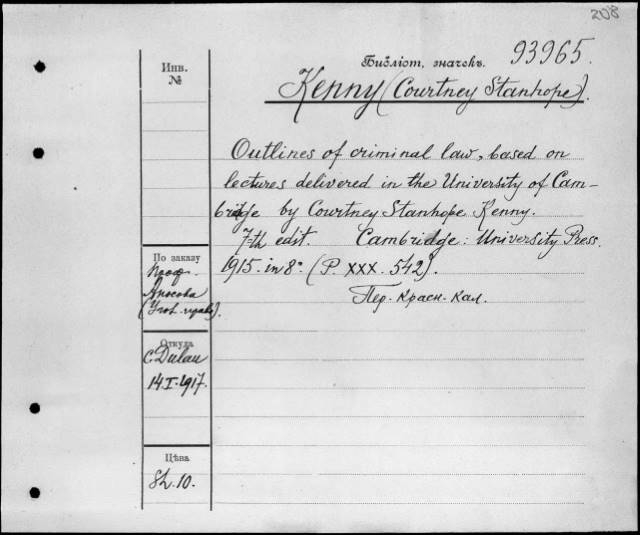 208
Библіот. значекъ. 93965.
Kenny (Courtney Stanhope).
Инв.
№
Outlines of criminal law, based on
lectures delivered in the University of Cam-
bridge by Courtney Stanhope Kenny.
7-th edit. Cambridge: University Press.
1915. in 8º. (P. XXX. 542).
Пер. красн. кал.
По заказу
Проф.
Аносова
(Угол. право).
Откуда
C. Dulau
14.I.1917.
Цѣна
Sh. 10.